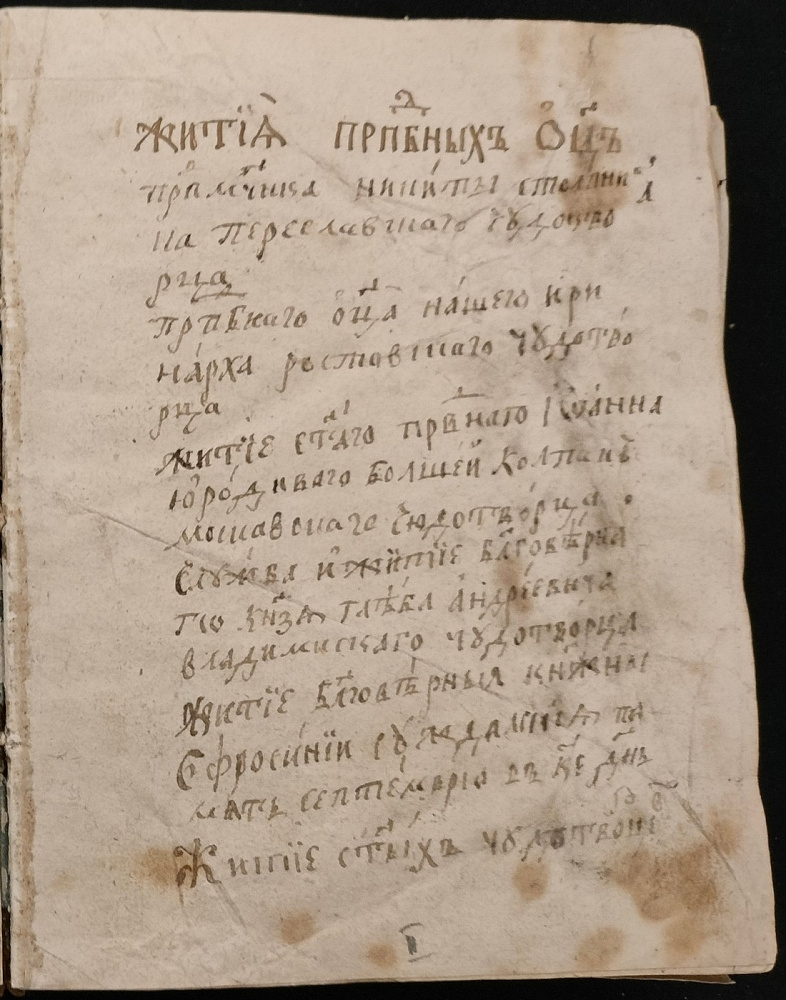 житїѧ̑ прпⷣбныхъ ѻц҃ъ
на переславскаго чудотво
рца
прпⷣбнаго ѻц҃а на́шего ири
на́рха ростовскаго чудотво́
рца
житїе ст҃а́го прⷣвнаго іѡа́нна
юро́диваго болшей колпакъ
московскаго чюдотво́рца
слу́жба и житїе бл҃говѣ́рна
гѡ кн҃зѧ глѣ́ба андре́евича
владимискаго чудотво́рца
житїе бл҃говѣ́рныя княжны
єфроси́нїи су́ждалскїѧ па
мѧть септе́мврїа въ к҃е дн҃ь
житїе ст҃ы́хъ